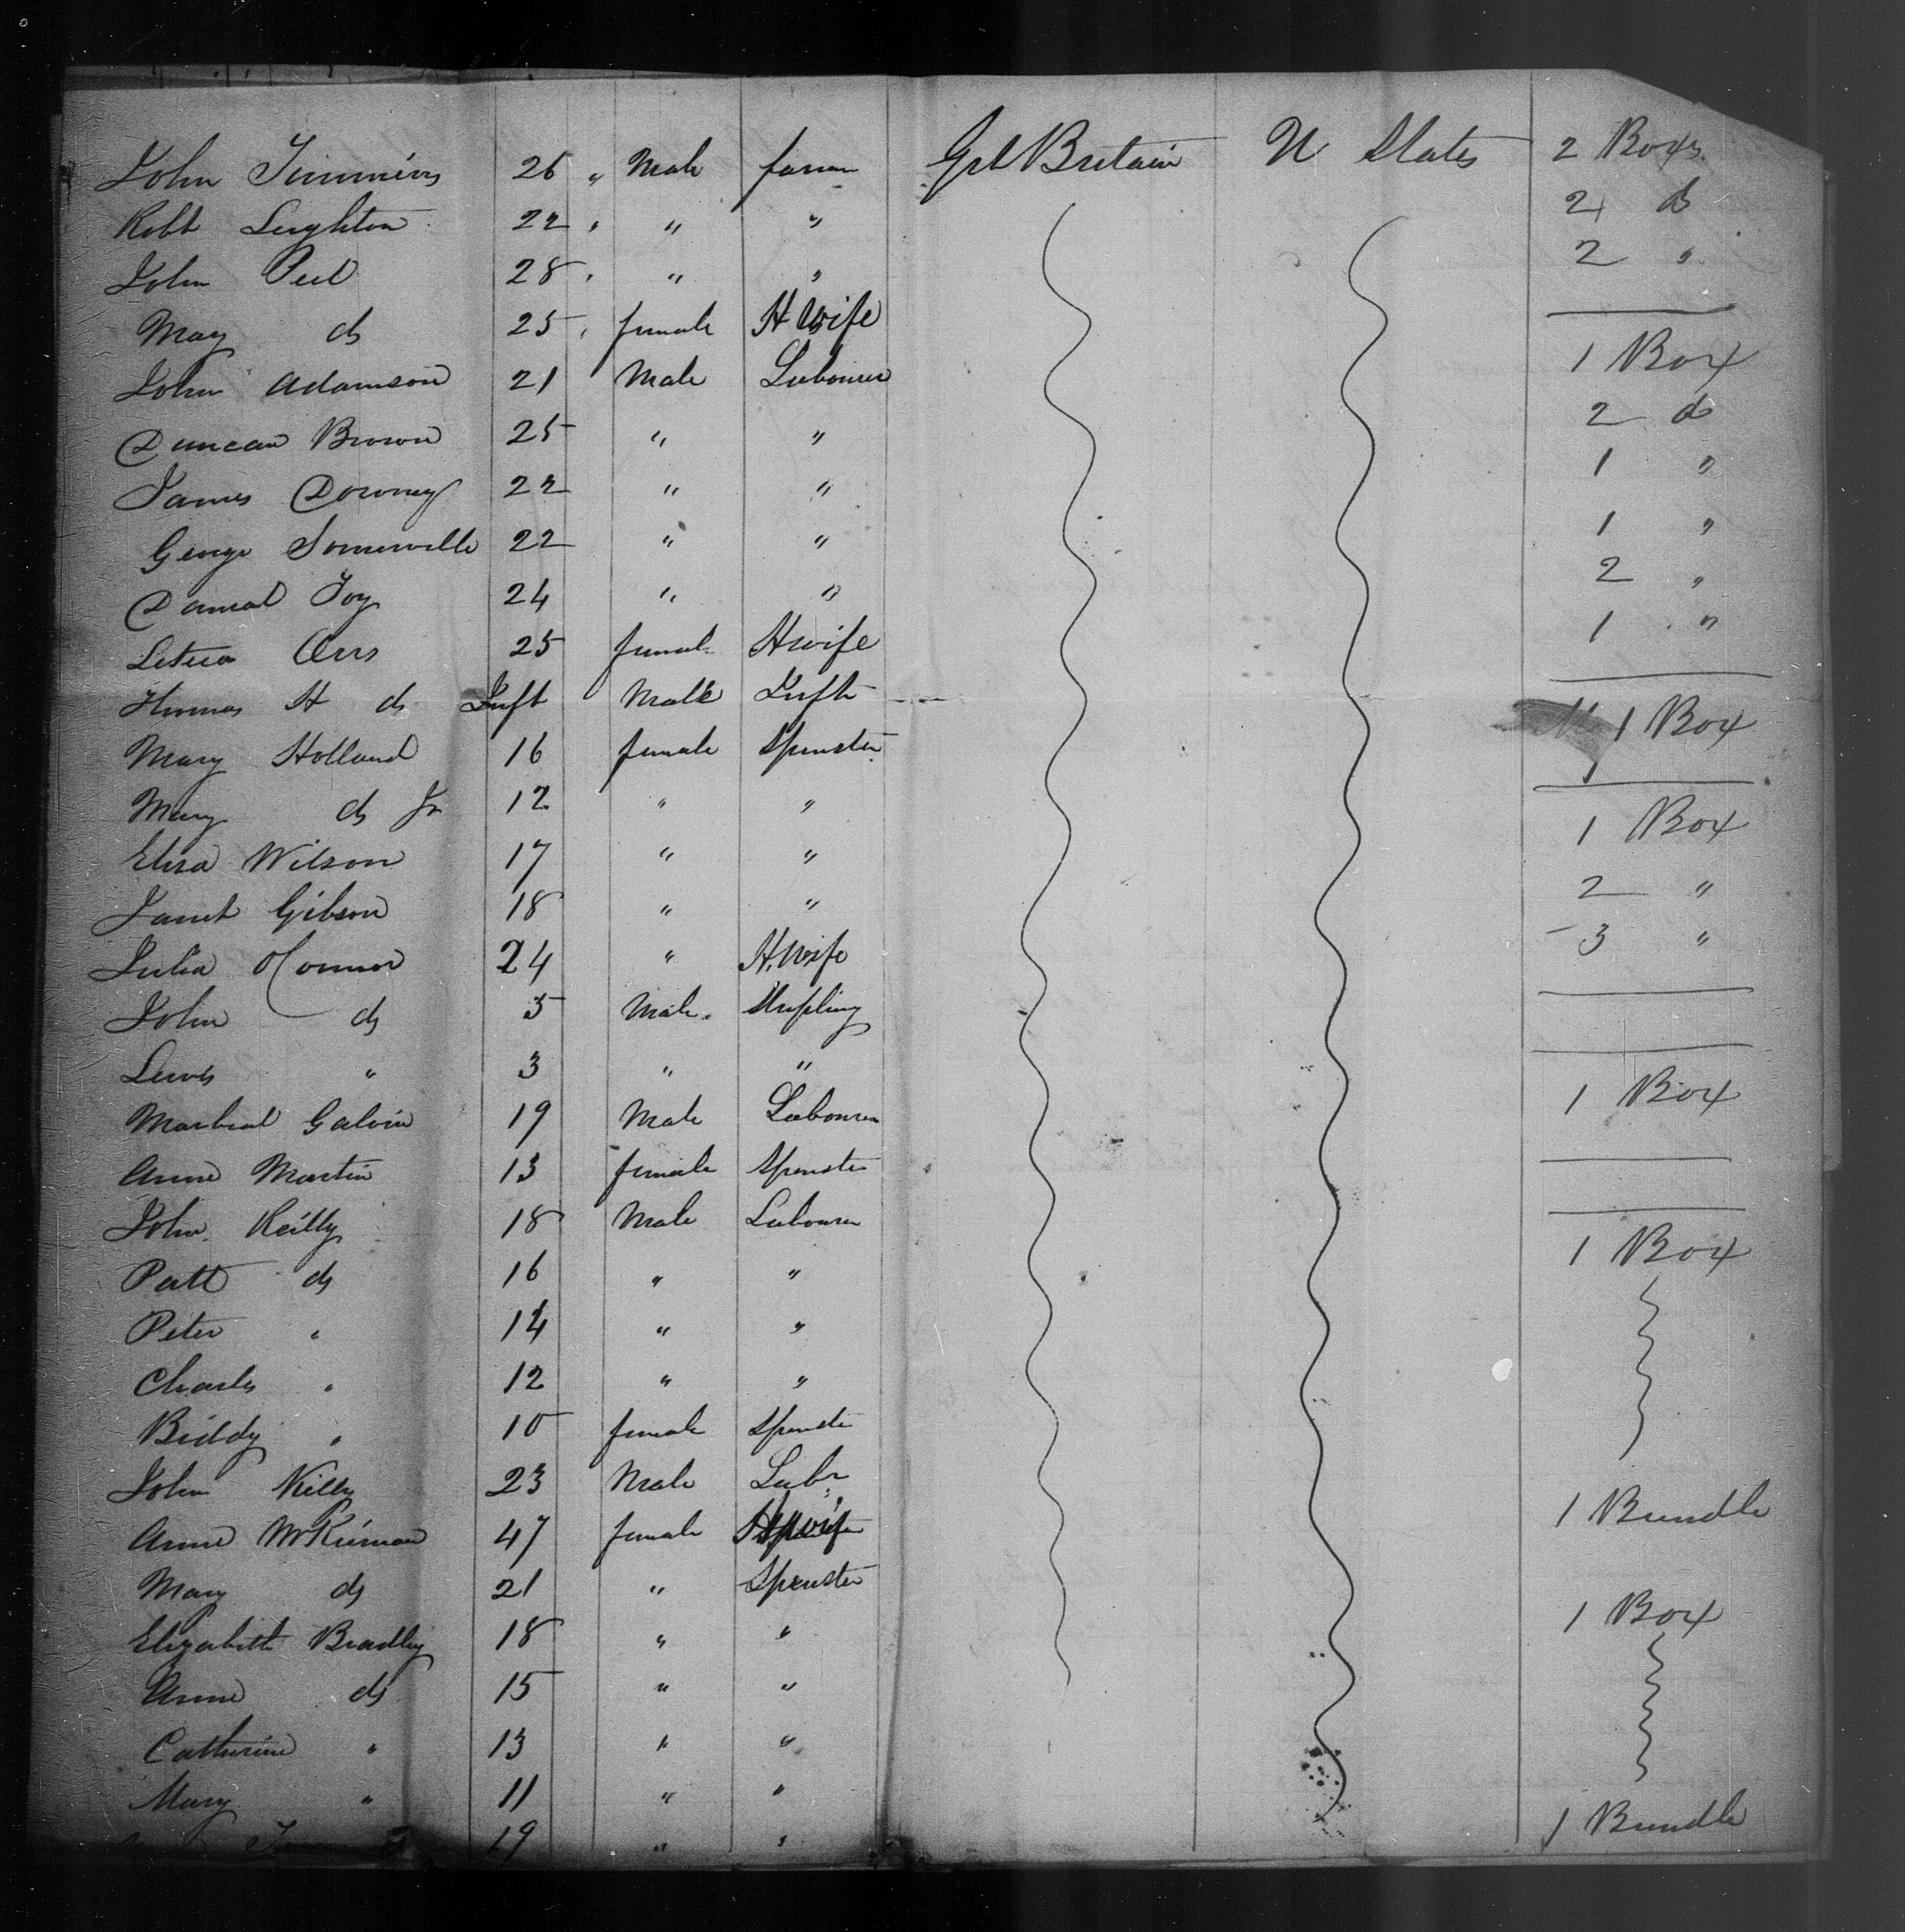 John Timmins 26 " Male farmer Grt Britain U States 2 Boxes
Robt Leighton 22 " " " 2 do
John Peel 28 " " " 2 "
Mary do 25 " female H Wife
John Adamson 21 Male Labourer 1 Box
Duncan Brown 25 " " 2 do
James Downey 22 " " 1 "
George Somerville 22 " " 1 "
Daniel Foy 24 " " 2 "
Leticia Orrs 25 female H wife 1 "
Thomas H do Inft Male Inft
Mary Holland 16 female Spinster 1 Box
Mary do Jr 12 " "
Eliza Wilson 17 " " 1 Box
Janet Gibson 18 " " 2 "
Julia OConnor 24 " H. Wife 3 "
John do 5 Male Stripling
Lewis " 3 " "
Galvin 19 Male Labourer 1 Box
Anne Martin 13 female Spinster
John Reilly 18 Male Labourer
Patt do 16 " " 1 Box
Peter " 14 " "
Charles " 12 " "
Biddy " 10 female Spinster
John Kelly 23 Male Labr
Anne McKiernan 47 female H wife 1 Bundle
Mary do 21 " Spinster
Elizabeth Bradley 18 " " 1 Box
Anne do 15 " "
Catherine " 13 " "
Mary " 11 " "
19 " " 1 Bundle